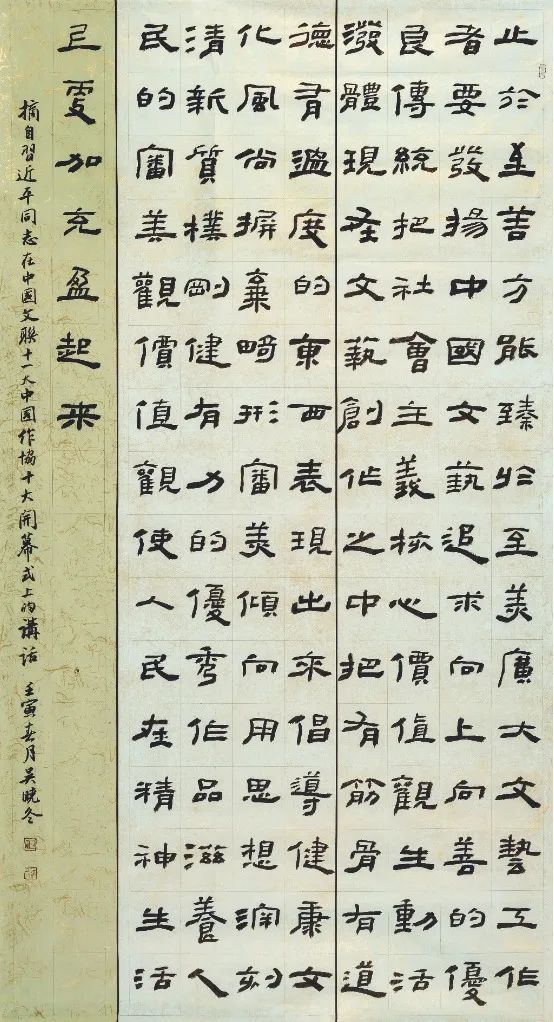 止於至善方能臻於至美廣大文藝工作
者要發揚中國文藝追求向上向善的優
良傳統把社會主義核心價值觀生動活
潑體現在文藝創作之中把有筋骨有道
德有溫度的東西表現出來倡導健康文
化風尚摒棄畸形審美傾向用思想深刻
清新質樸剛健有力的優秀作品滋養人
民的審美觀價值觀使人民在精神生活
上更加充盈起来
摘自習近平同志在中國文聯十一大中國作協十大開幕式上的講話 壬寅春月吴曉冬